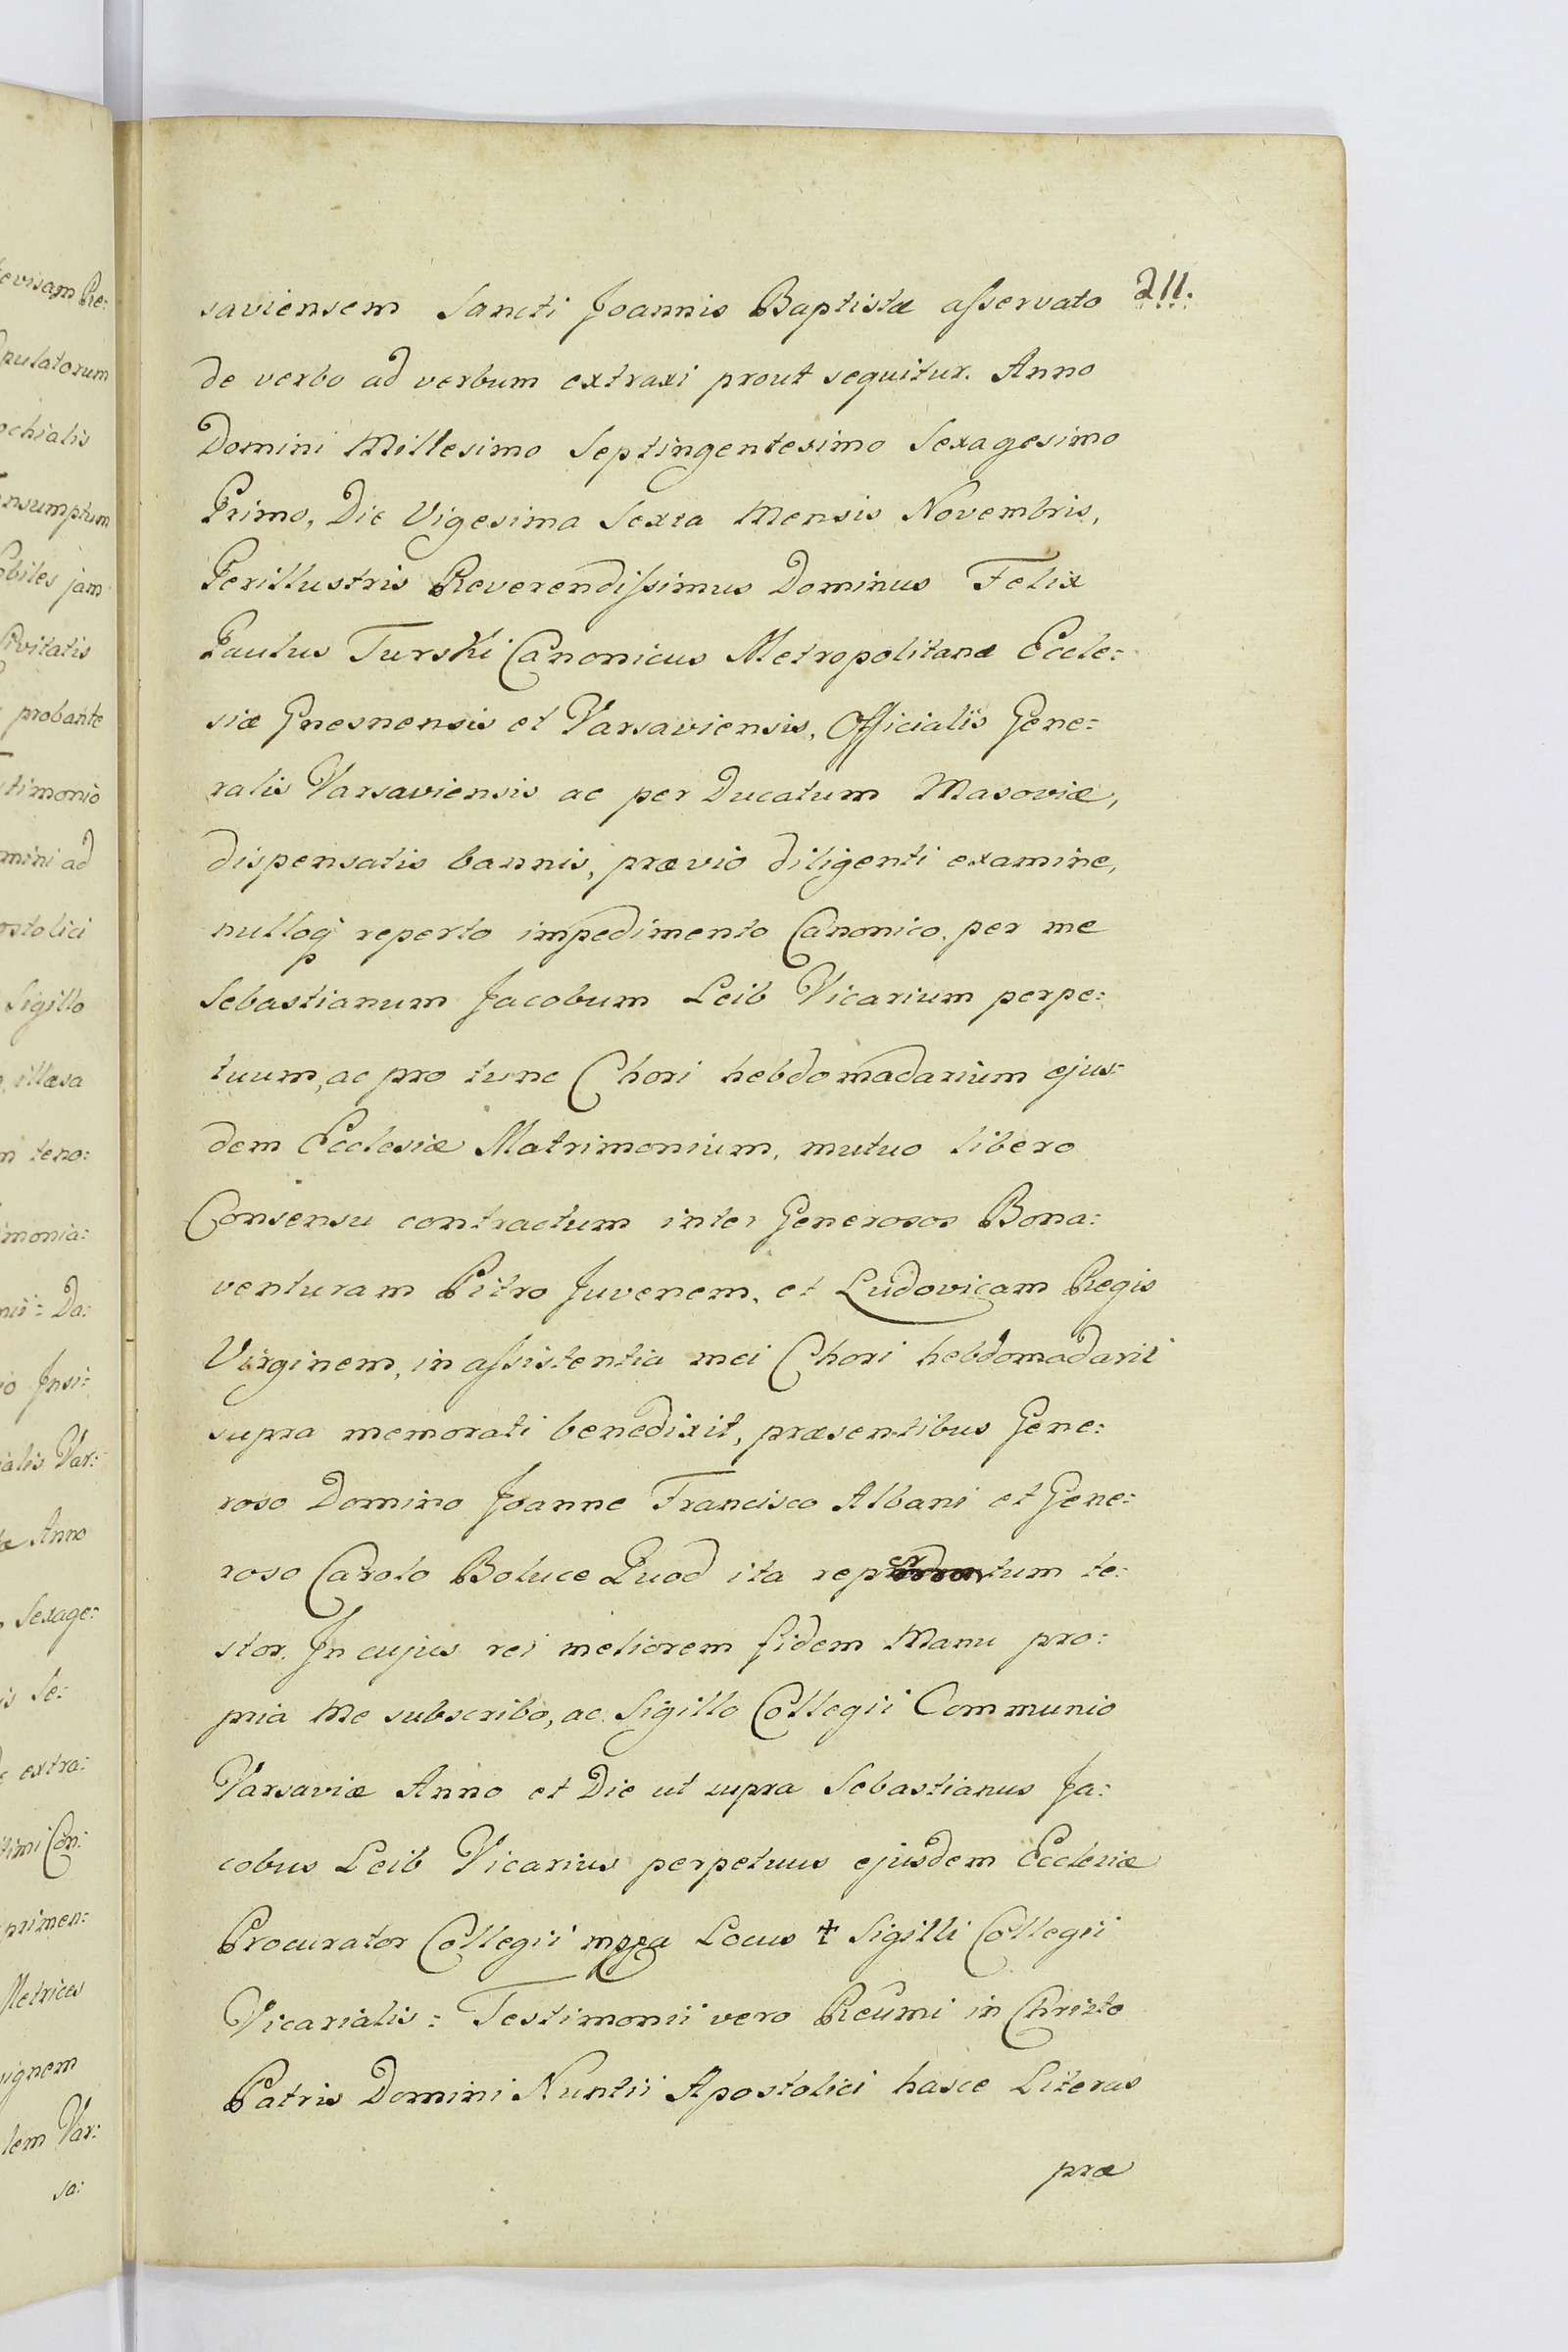 211.
saviensem Sancti Joannis Baptistæ asservato
de verbo ad verbum extraxi prout sequitur. Anno
Domini Millesimo Septingentesimo Sexagesimo
Primo, Die Vigesima Sexta Mensis Novembris,
Perillustris Reverendissimus Dominus Felix
Paulus Turski Canonicus Metropolitanæ Eccle:
siæ Gnesnensis et Varsaviensis, Officialis Gene:
ralis Varsaviensis ac per Ducatum Masoviæ,
dispensatis bannis, prævio diligenti examine,
nulloq reperto impedimento Canonico, per me
Sebastianum Jacobum Leib Vicarium perpe:
tuum, ac pro tunc Chori hebdomadarium ejus:
dem Ecclesiæ Matrimonium, mutuo libero
Consensu contractum inter Generosos Bona:
venturam Pitro Juvenem, et Ludovicam Regis
Virginem, in assistentia mei Chori hebdomadarii
supra memorati benedixit, præsentibus Gene:
roso Domino Joanne Francisco Albani et Gene:
roso Carolo Boluce Quod ita repertum te:
stor. In cujus rei meliorem fidem Manu pro:
pria Me subscribo, ac Sigillo Collegii Communio
Varsaviæ Anno et Die ut supra Sebastianus Ja:
cobus Leib Vicarius perpetuus ejusdem Ecclesiæ
Procurator Collegii mppa Locus ✝ Sigilli Collegii
Vicarialis: Testimonii vero Reûmi in Christo
Patris Domini Nuntii Apostolici hasce Literas
præ
evisam Re:
pulatorum
ochialis
nsumptum
obiles jam
Civitatis
probante
timonio
mini ad
ostolici
Sigillo
illæsa
m teno:
imonia:
Da:
io Insi:
ialis Var:
Anno
Sexage:
is Se:
extra:
timi Con:
primen:
Metrices
signem
lem Var:
sa: